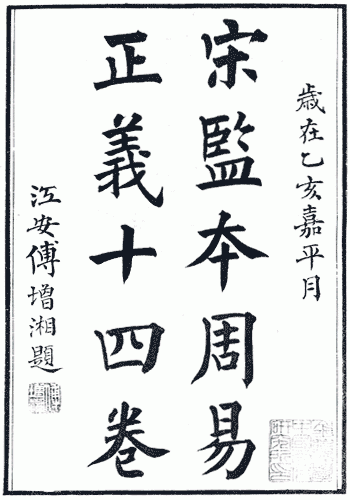 歲在乙亥嘉平月
宋監本周易
正義十四卷
江安傅增湘題